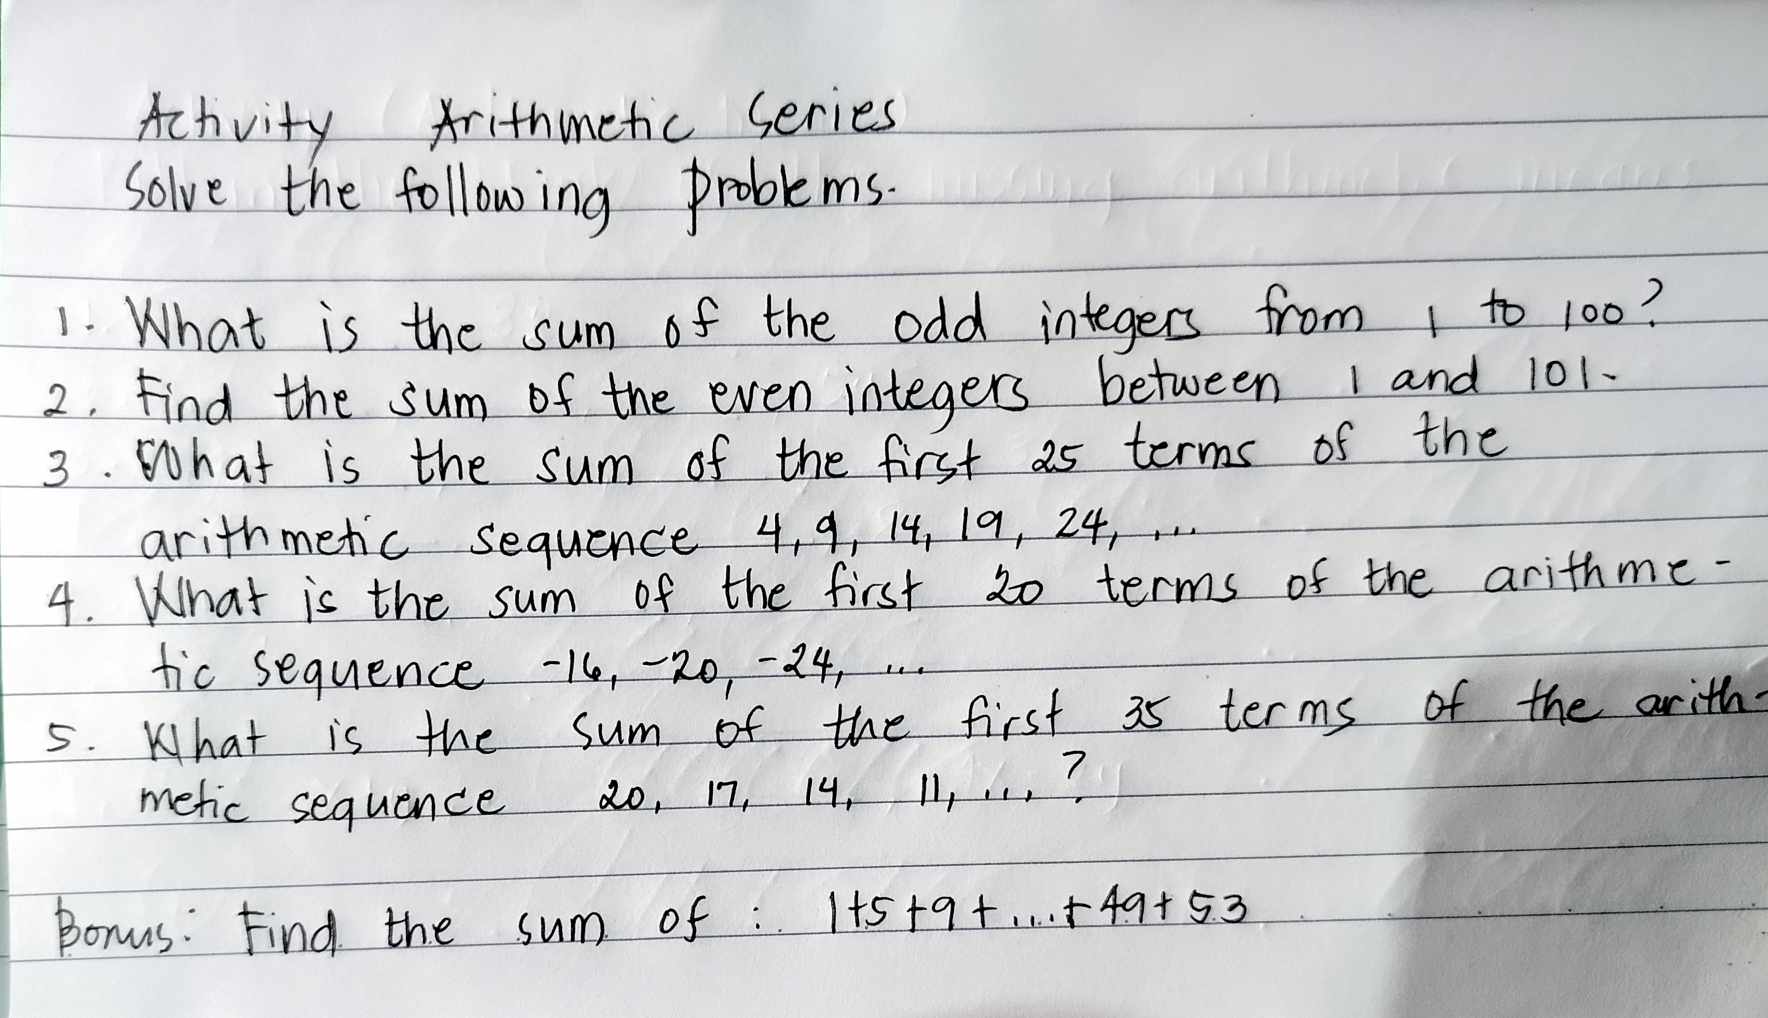 Activity Arithmetic Series
Solve the following problems.
1. What is the sum of the odd integers from 1 to 100?
2. Find the sum of the even integers between 1 and 101.
3. What is the sum of the first 25 terms of the
arithmetic sequence 4, 9, 14, 19, 24, ...
4. What is the sum of the first 20 terms of the arithme-
tic sequence -16, -20, -24, ...
5. What is the sum of the first 35 terms of the arith-
metic sequence 20, 17, 14, 11, ...?
Bonus: Find the sum of : 1+5+9+...+49+53